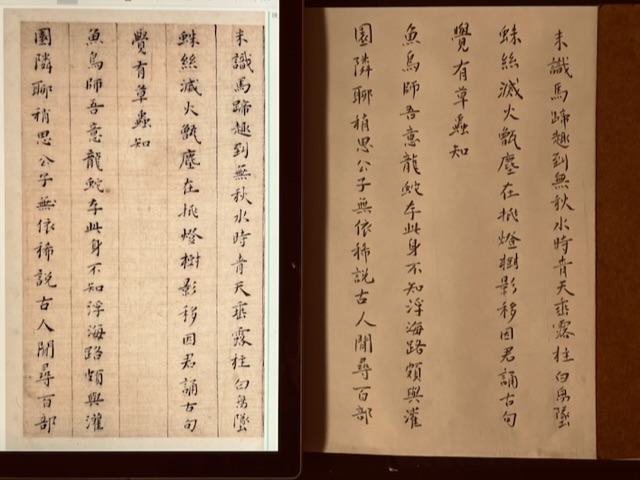 未識馬蹄趣到無秋水時青天垂露柱白鳥墜
蛛絲滅火甑塵在挑燈樹影移因君誦古句
覺有草蟲知
魚鳥師吾意龍蛇存此身不知浮海路頗與灌
園隣聊稍思公子無依稀說古人閒尋百部
未識馬蹄趣到無秋水時青天垂露柱白鳥墜
蛛絲滅火甑塵在挑燈樹影移因君誦古句
覺有草蟲知
魚鳥師吾意龍蛇存此身不知浮海路頗與灌
園隣聊稍思公子無依稀說古人閒尋百部